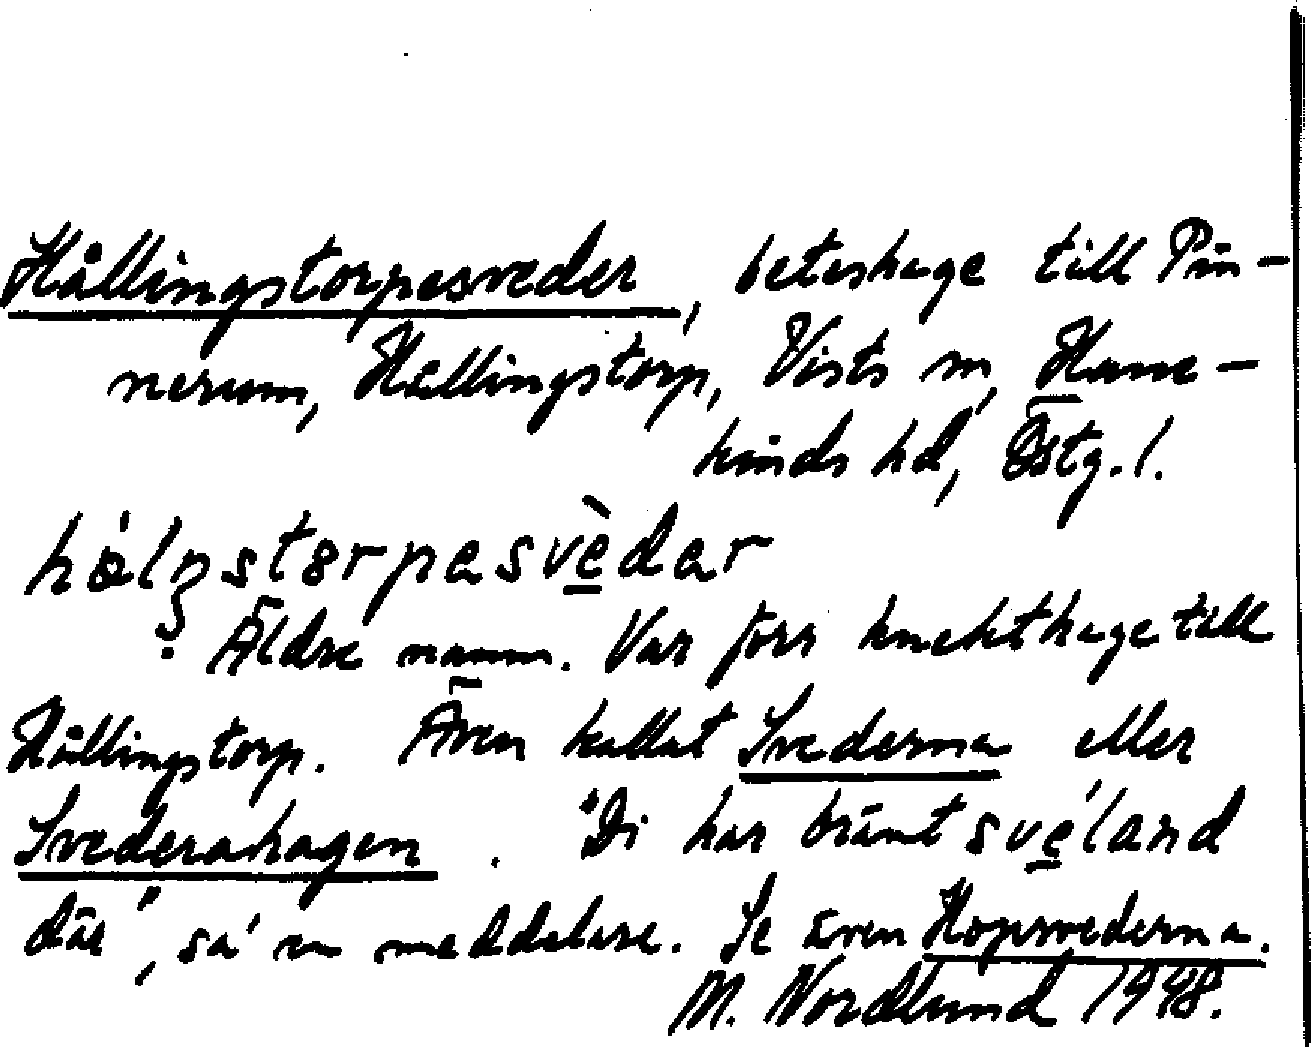 Hållingstorpesveder, beteshage till Pin-
nerum, Hållingstorp, Vists sn, Hane-
kinds hd, Östg. l.
hålŋstorpesvèdar
Äldre namn. Var förr knekthage till
Hållingstorp. Även kallat Svederna eller
Svederahagen. "Di har bränt svéland
där", sa' en meddelare. Se även Hopsvederna.
M. Nordlund 1948.